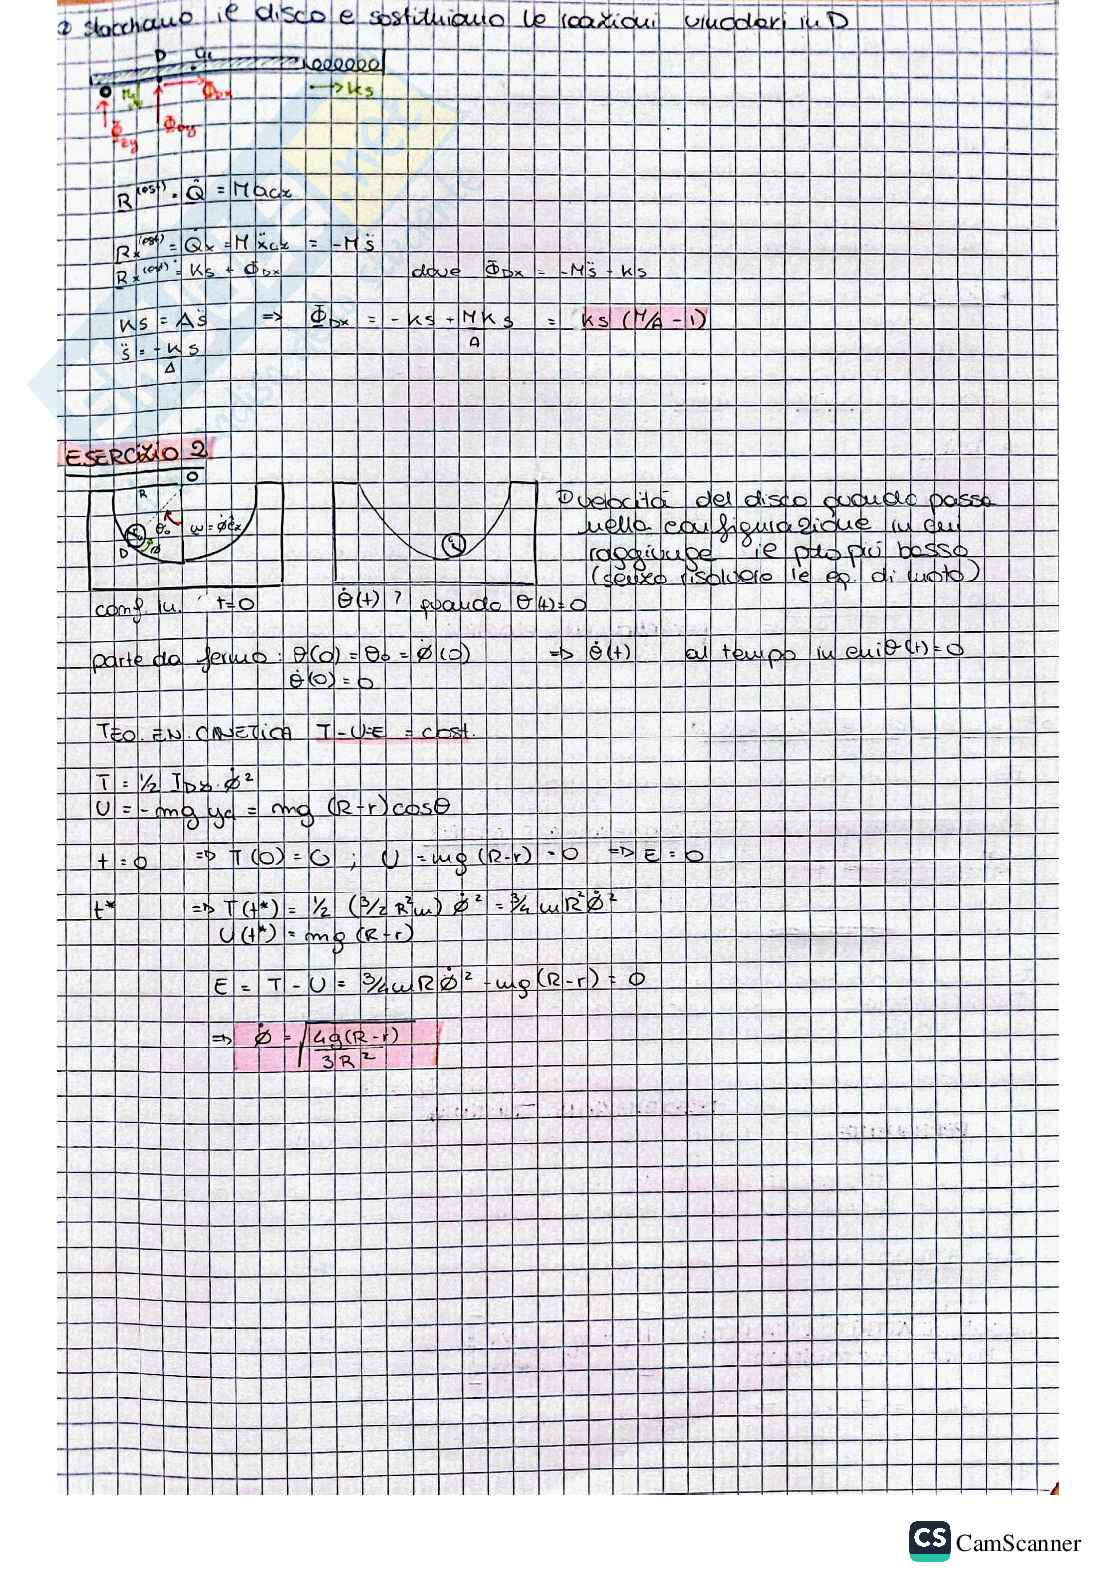 ② stacchiamo il disco e sostituiamo le reazioni vincolari in D
D G
Ks
Φ_Dx
Φ_Dy
R^(est) · Q̂ = M a_Gx
R_x^(est) = Q̇_x = M ẍ_Gx = -M s̈
R_x^(est) = Ks + Φ_Dx dove Φ_Dx = -M s̈ - Ks
Ks = A s̈ => Φ_Dx = -Ks + MKs/A = Ks (M/A - 1)
s̈ = -K/A s
ESERCIZIO 2
O
R
θ₀ ω = φ̇ ê_z
D φ
① velocità del disco quando passa
nella configurazione in cui
raggiunge il pto più basso
(senza risolvere le eq. di moto)
conf. in. t=0 θ̇(t) ? quando θ(t)=0
parte da fermo: θ(0) = θ₀ = φ̇(0) => θ̇(t) al tempo in cui θ(t)=0
θ̇(0) = 0
TEO. EN. CINETICA T-U=E = cost.
T = ½ I_Dz · φ̇²
U = -mg y_G = mg (R-r) cosθ
t = 0 => T(0) = 0 ; U = mg (R-r) · 0 => E = 0
t* => T(t*) = ½ (3/2 R²m) φ̇² = ¾ mR²φ̇²
U(t*) = mg (R-r)
E = T - U = ¾ mRφ̇² - mg (R-r) = 0
=> φ̇ = √(4g(R-r) / 3R²)
CS CamScanner